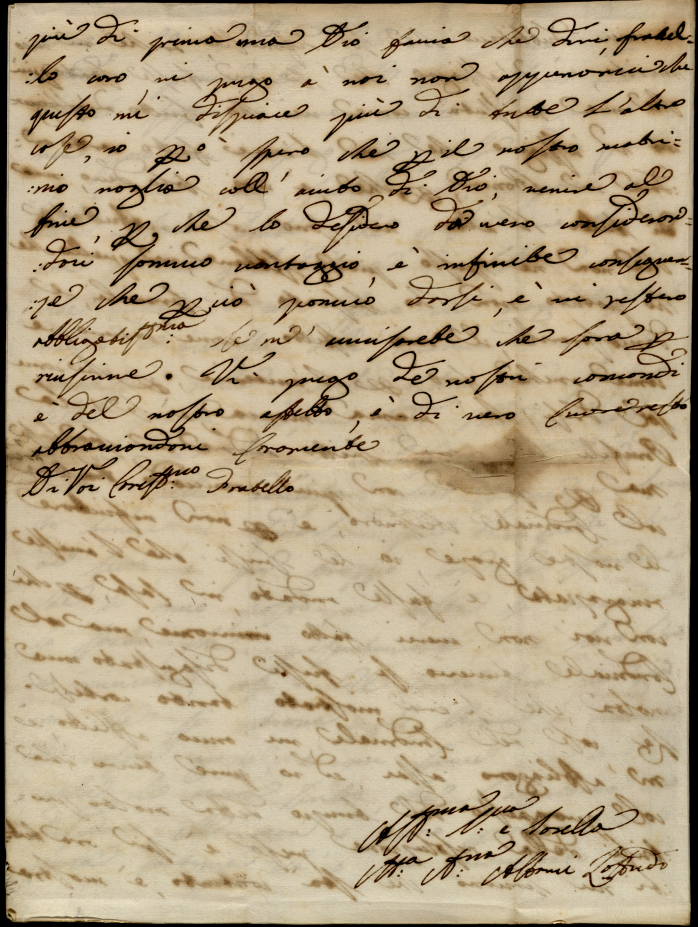 più di prima ma Dio facia che dini fratel-
:lo caro, vi prego à noi non
questo mi dispiace più di tutte l'altre
cose, io pº spero che p il nostro matri:
:mo voglia coll' aiuto di Dio, venire al
fine, p che lo desidero da vero consideran-
:doci sommo vantaggio, è infinite conseguen-
:ze che p ciò ponno darsi, è vi resterò
obligatissma: se m' che sarà p
riuscirne. Vi prego de vostri comandi
è del vostro affetto, è di vero Cuore resto
abbraciandovi Caramente
Di Voi Carissmo: Fratello
Affma: S:va e Sorella
Ma: Ana Albrizi